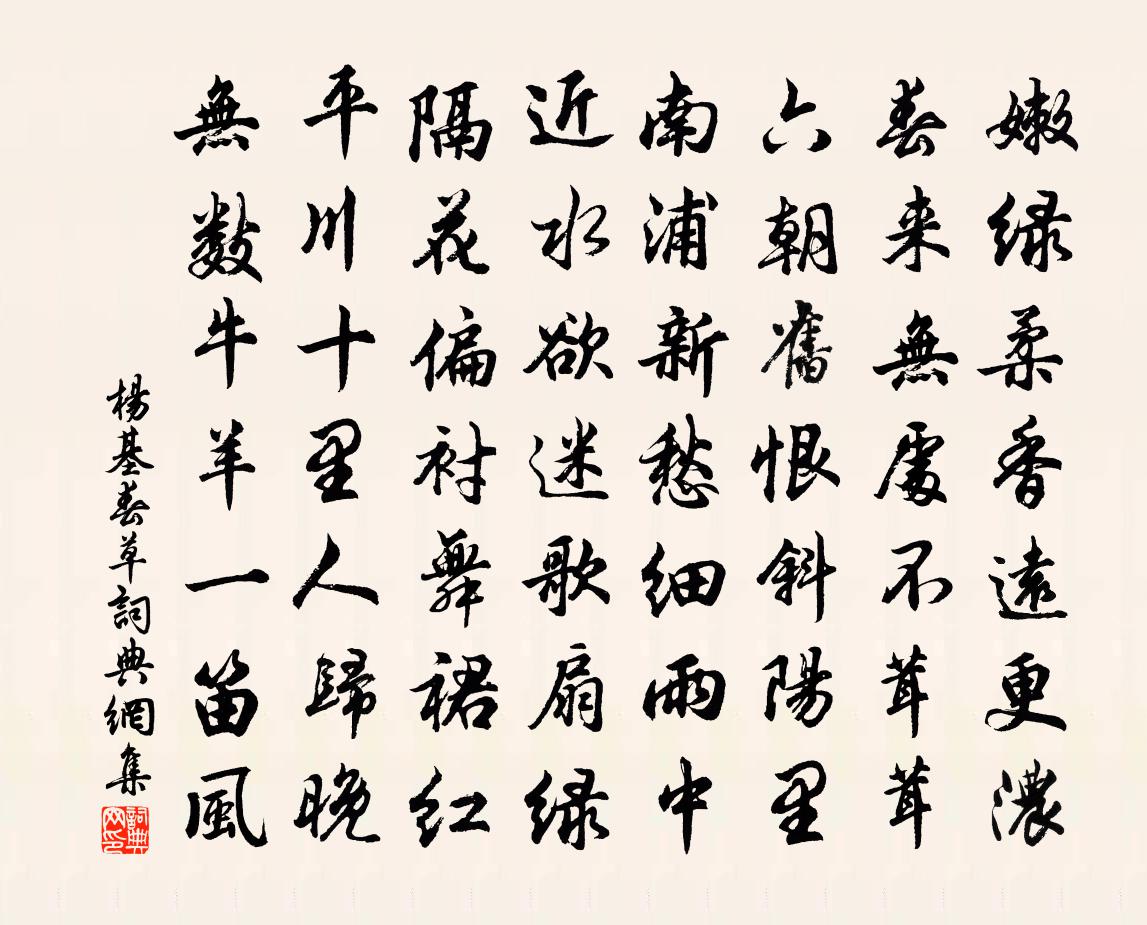 嫩绿柔香遠更濃
春来無處不茸茸
六朝舊恨斜陽里
南浦新愁细雨中
近水欲迷歌扇绿
隔花偏衬舞裙红
平川十里人歸晚
無数牛羊一笛風
楊基春草詞典網集
詞典网印